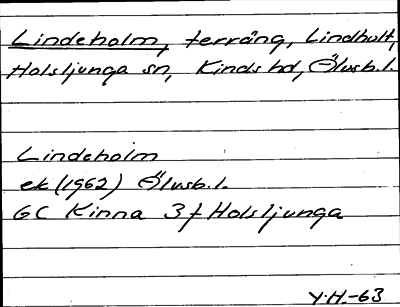 Lindeholm, terräng, Lindhult,
Holsljunga sn, Kinds hd, Älvsb.l.
Lindeholm
ek (1962) Älvsb.l.
GC Kinna 3f Holsljunga
Y.H.-63